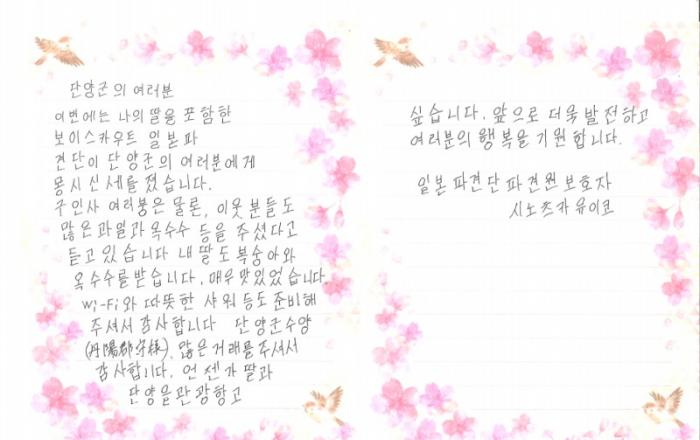 단양군의 여러분
이번에는 나의 딸을 포함한
보이스카우트 일본파
견단이 단양군의 여러분에게
몽시신세를 졌습니다.
구인사 여러붕은 물론, 이웃 분들도
많은 과일과 옥수수 등을 주셨다고
듣고 있습니다 내 딸도 복숭아와
옥수수를 받습니다. 매우 맛있었습니다.
Wi-Fi와 따뜻한 샤워 등도 준비해
주셔서 감사합니다 단양군수양
(丹陽郡守様), 많은 거래를 주셔서
감사합니다. 언젠가 딸과
단양을 관광항고
싶습니다. 앞으로 더욱 발전하고
여러분의 행복을 기원합니다.
일본 파견단 파견원 보호자
시노츠카 유이코